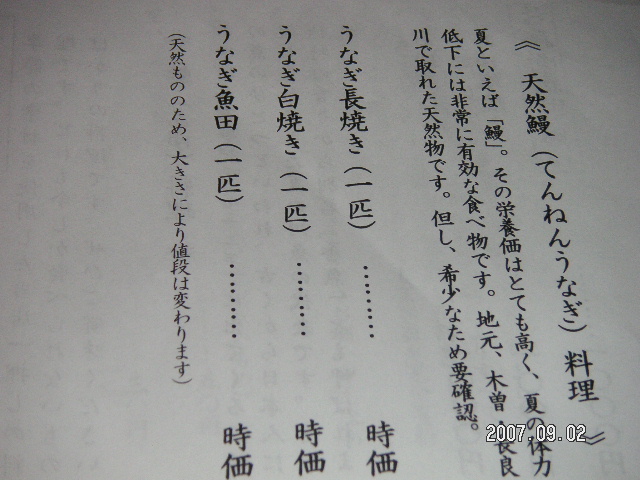 《 天然鰻（てんねんうなぎ）料理 》
夏といえば「鰻」。その栄養価はとても高く、夏の体力
低下には非常に有効な食べ物です。地元、木曽・長良
川で取れた天然物です。但し、希少なため要確認。
うなぎ長焼き（一匹）………時価
うなぎ白焼き（一匹）………時価
うなぎ魚田（一匹）………時価
（天然もののため、大きさにより値段は変わります）
2007.09.02